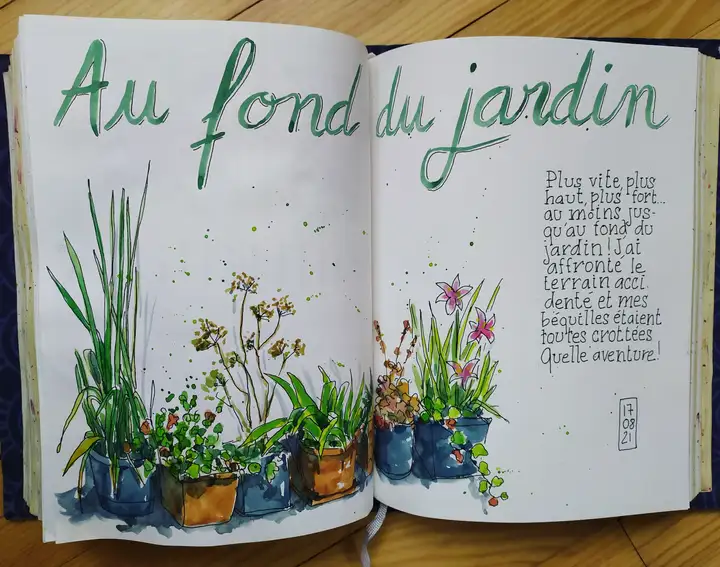 Au fond du jardin
Plus vite, plus
haut, plus fort...
au moins jus-
qu'au fond du
jardin ! J'ai
affronté le
terrain acci
denté et mes
béquilles étaient
toutes crottées
quelle aventure !
17
08
21